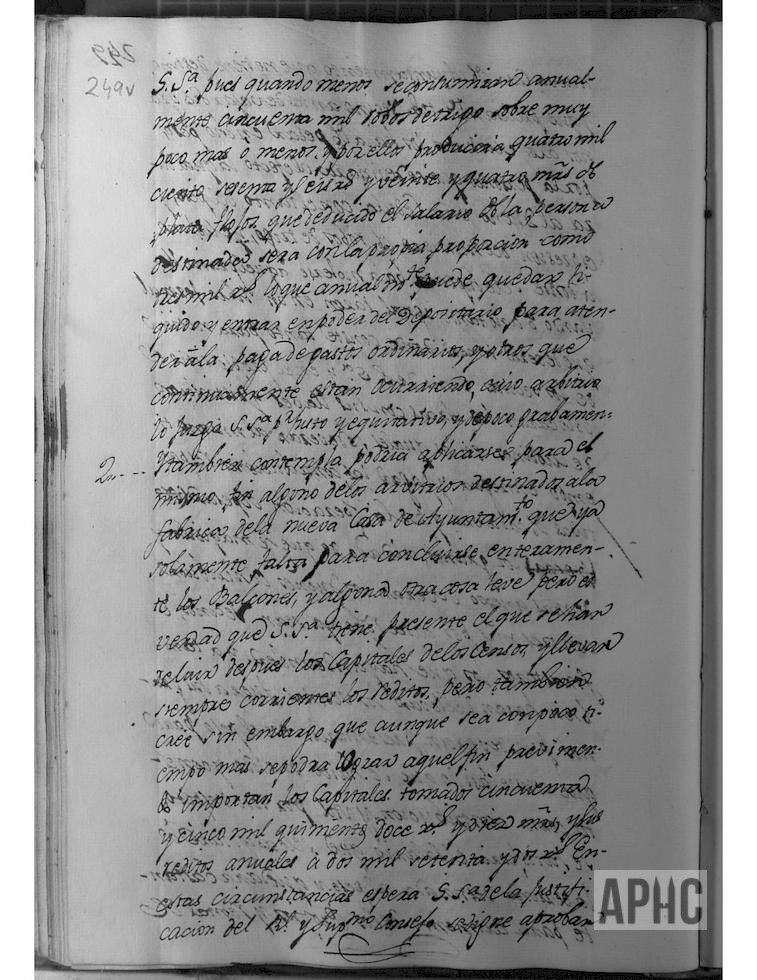 249
249v
S.Sª. pues quando menos se consumiran anual-
mente cinquenta mil robos de trigo sobre muy
poco mas ò menos, y por ellos produciria quatro mil
ciento sesenta y seis rs. y veinte y quatro mrs. de
plata flojos, que deducido el salario de la persona
destinada sera con la propia propocion como
tres mil rs. lo que anualmte. puede quedar li-
quido y entrar en poder del Depositario para aten-
der à la paga de gastos ordinarios, y otros que
continuamente estan ocurriendo, cuio arbitrio
lo juzga S.Sª. pr. justo y equitativo, y de poco grabamen.
2.. - - - Y tambien contempla podria aplicarse para el
mismo fin alguno de los arbitrios destinados a la
fabrica de la nueva Casa de Ayuntamto. que ya
solamente falta para concluirse enteramen-
te los Balcones, y alguna otra cosa leve pero es
verdad que S.Sª. tiene presente el que se han
reluir despues los Capitales de los Censos, y llevar
siempre corrientes los reditos, pero tambien
cree sin embargo que aunque sea con poco ti-
empo mas se podra lograr aquel fin
importan los Capitales tomados cincuenta
y cinco mil quinientos doce rs. y diez mrs. y sus
reditos anuales à dos mil setenta y dos rs. En-
estas circunstancias espera S.Sª. de la justifi-
cacion del Rl. y Supmo. Consejo se digne aprobar
APHC